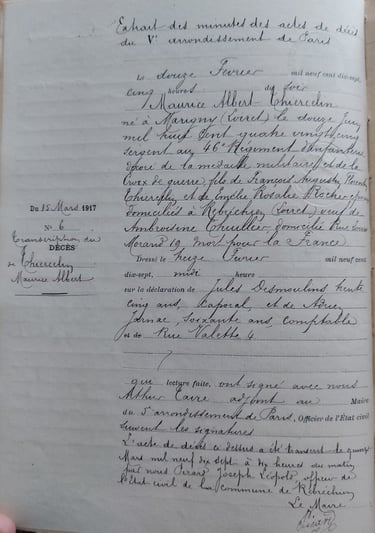 Extrait des minutes des actes de décès
du Ve arrondissement de Paris
Le douze Février mil neuf cent dix-sept,
cinq heures du soir
Maurice Albert Thiercelin
né à Marigny (Loiret) le douze Juin
mil huit cent quatre vingt cinq
sergent au 46e Régiment d'infanterie
décoré de la médaille militaire et de la
Croix de guerre, fils de François Auguste
Thiercelin et de Emélie Rosalie Rocher
domiciliés à Rebréchien (Loiret) veuf de
Ambroisine Thuillier, domicilié Rue
Morand 19, mort pour la France
Du 15 Mars 1917
No 6
Transcription du
DÉCÈS
de Thiercelin
Maurice Albert
Dressé le Février mil neuf cent
dix-sept, midi heures
sur la déclaration de Jules Desmoulins trente
cinq ans, caporal, et de
Jarnac, soixante ans, comptable
et de Rue Valette 4
qui lecture faite, ont signé avec nous
Arthur Caire adjoint au Maire
du 5e arrondissement de Paris, Officier de l'État civil
suivent les signatures
L'acte de décès ci dessus a été transcrit le quinze
Mars mil neuf dix sept à dix heures du matin
par nous Joseph Léopold officier de
l'Etat civil de la commune de Rebréchien
Le Maire